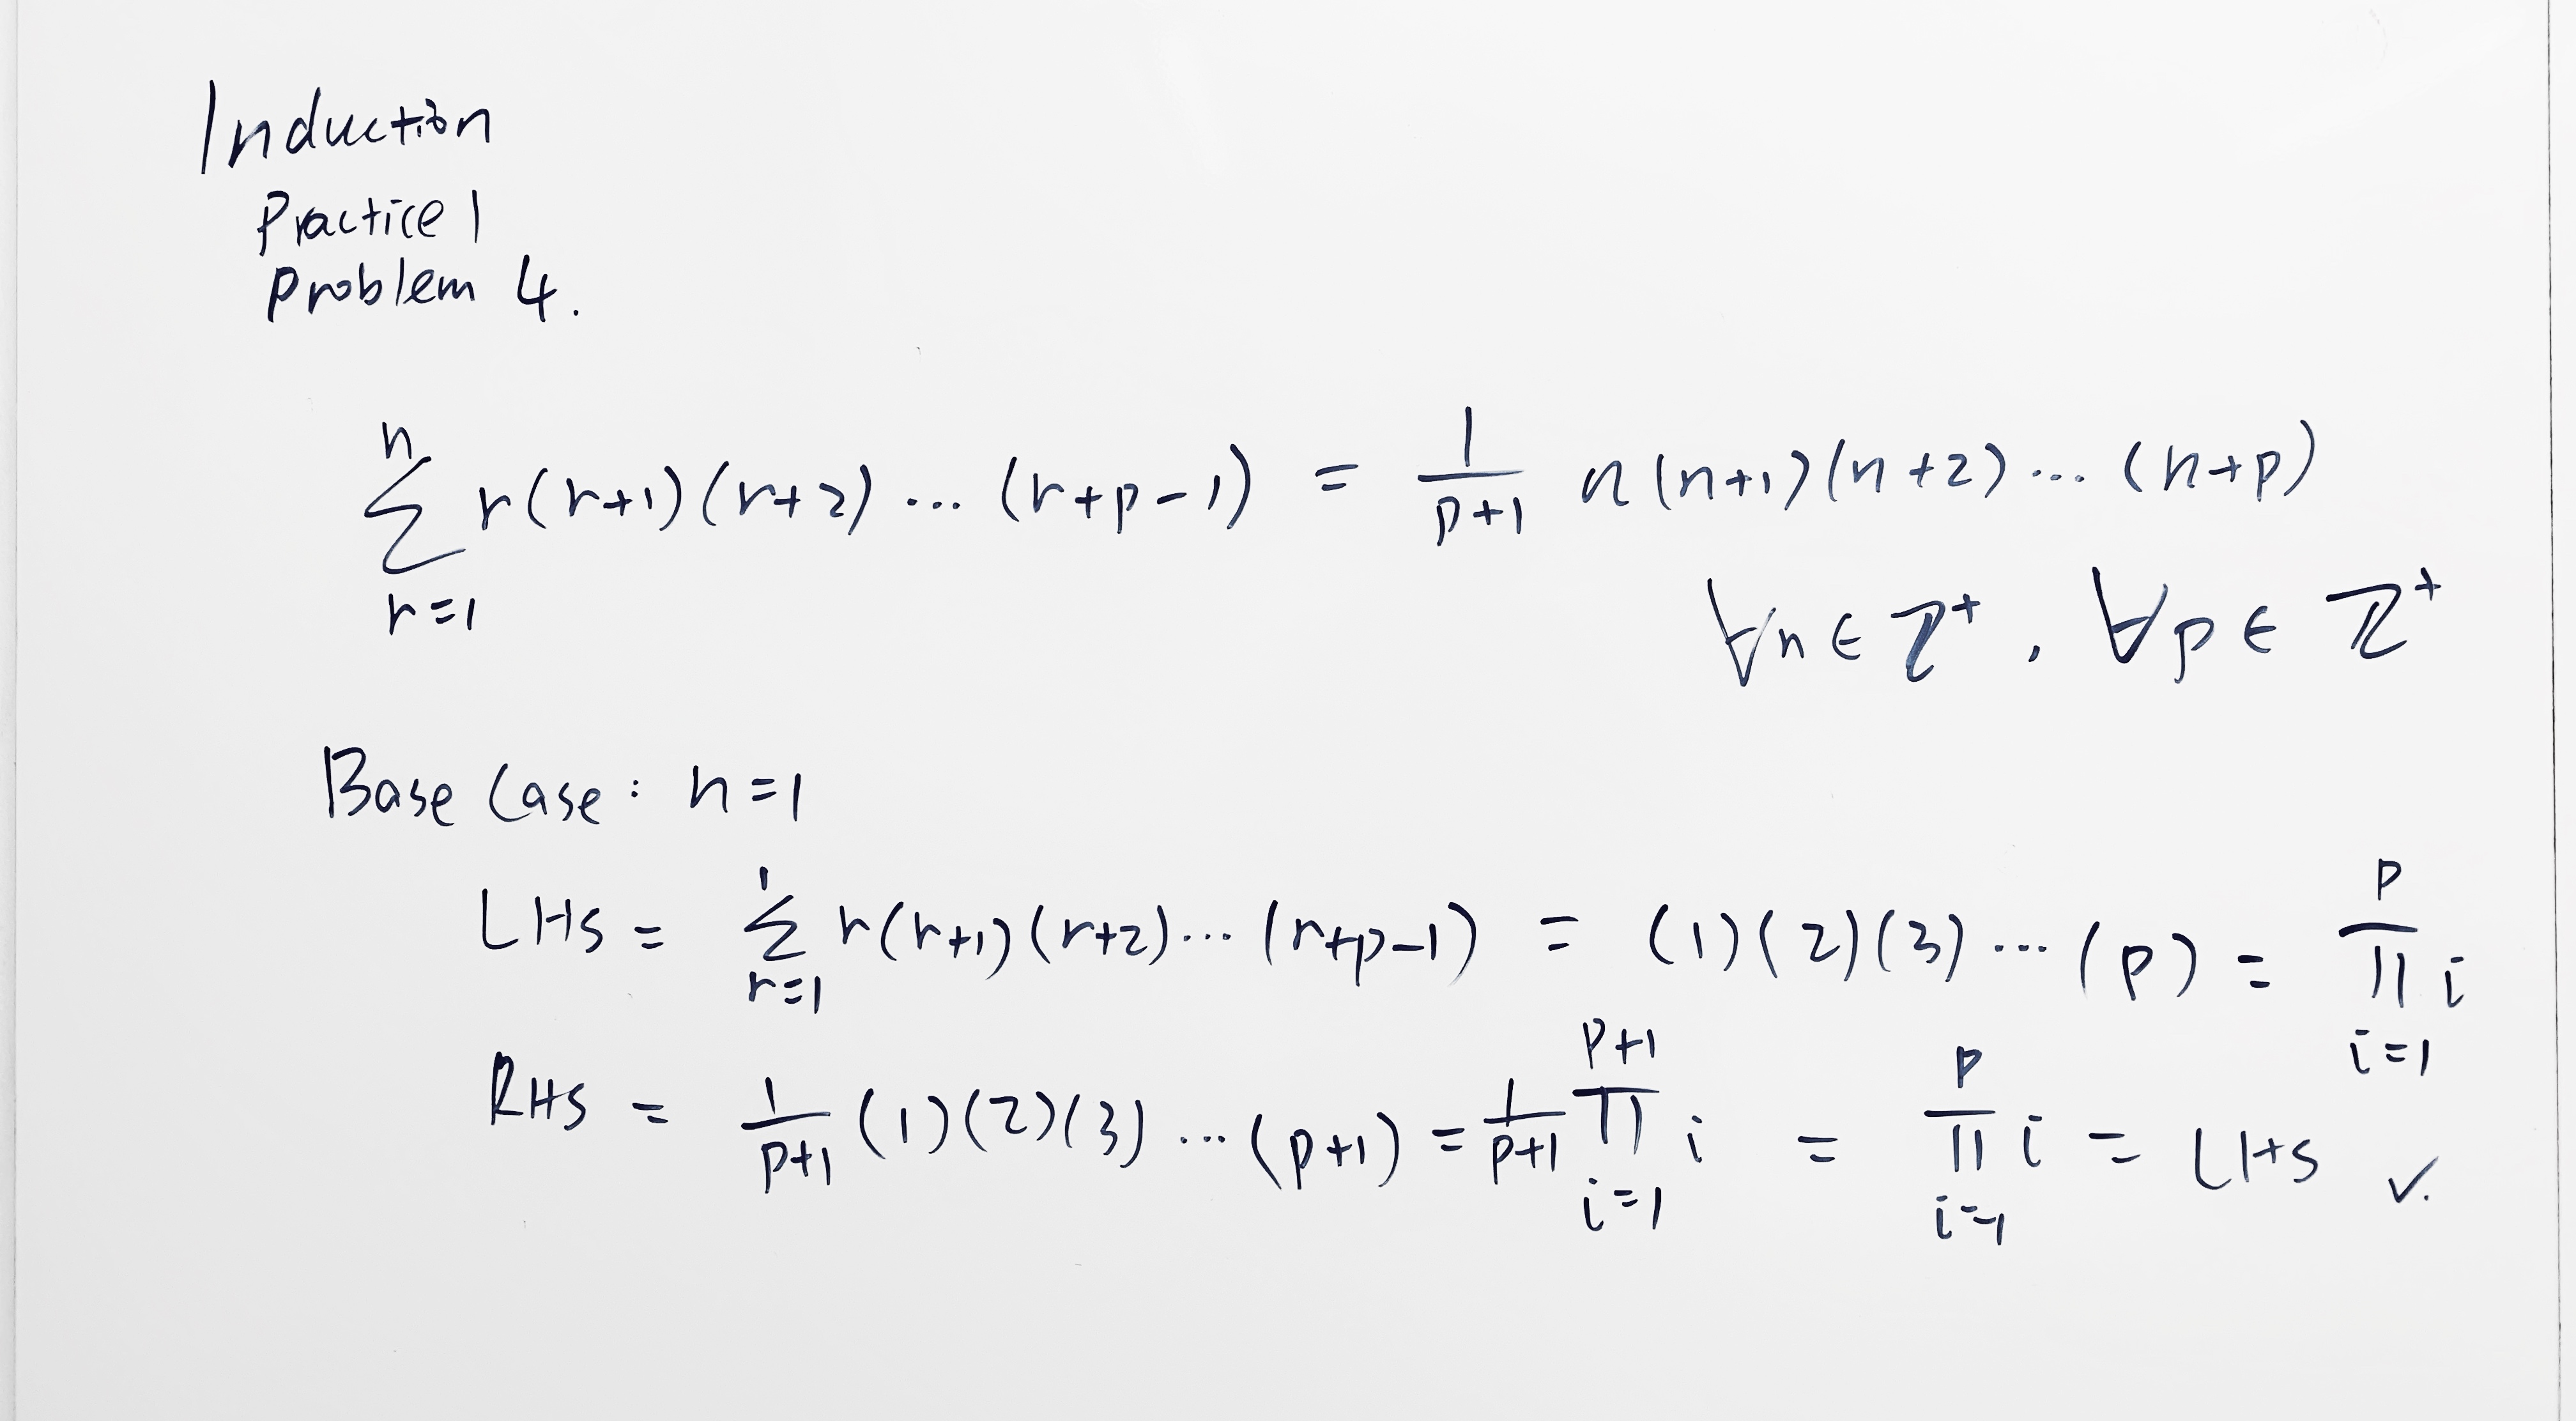 Induction
Practice 1
Problem 4.
n
∑ r(r+1)(r+2)...(r+p-1) = 1/(p+1) n(n+1)(n+2)...(n+p)
r=1
∀n∈ℤ⁺, ∀p∈ℤ⁺
Base Case: n=1
LHS = ∑_{r=1}^{1} r(r+1)(r+2)...(r+p-1) = (1)(2)(3)...(p) = ∏_{i=1}^{p} i
RHS = 1/(p+1) (1)(2)(3)...(p+1) = 1/(p+1) ∏_{i=1}^{p+1} i = ∏_{i=1}^{p} i = LHS ✓.